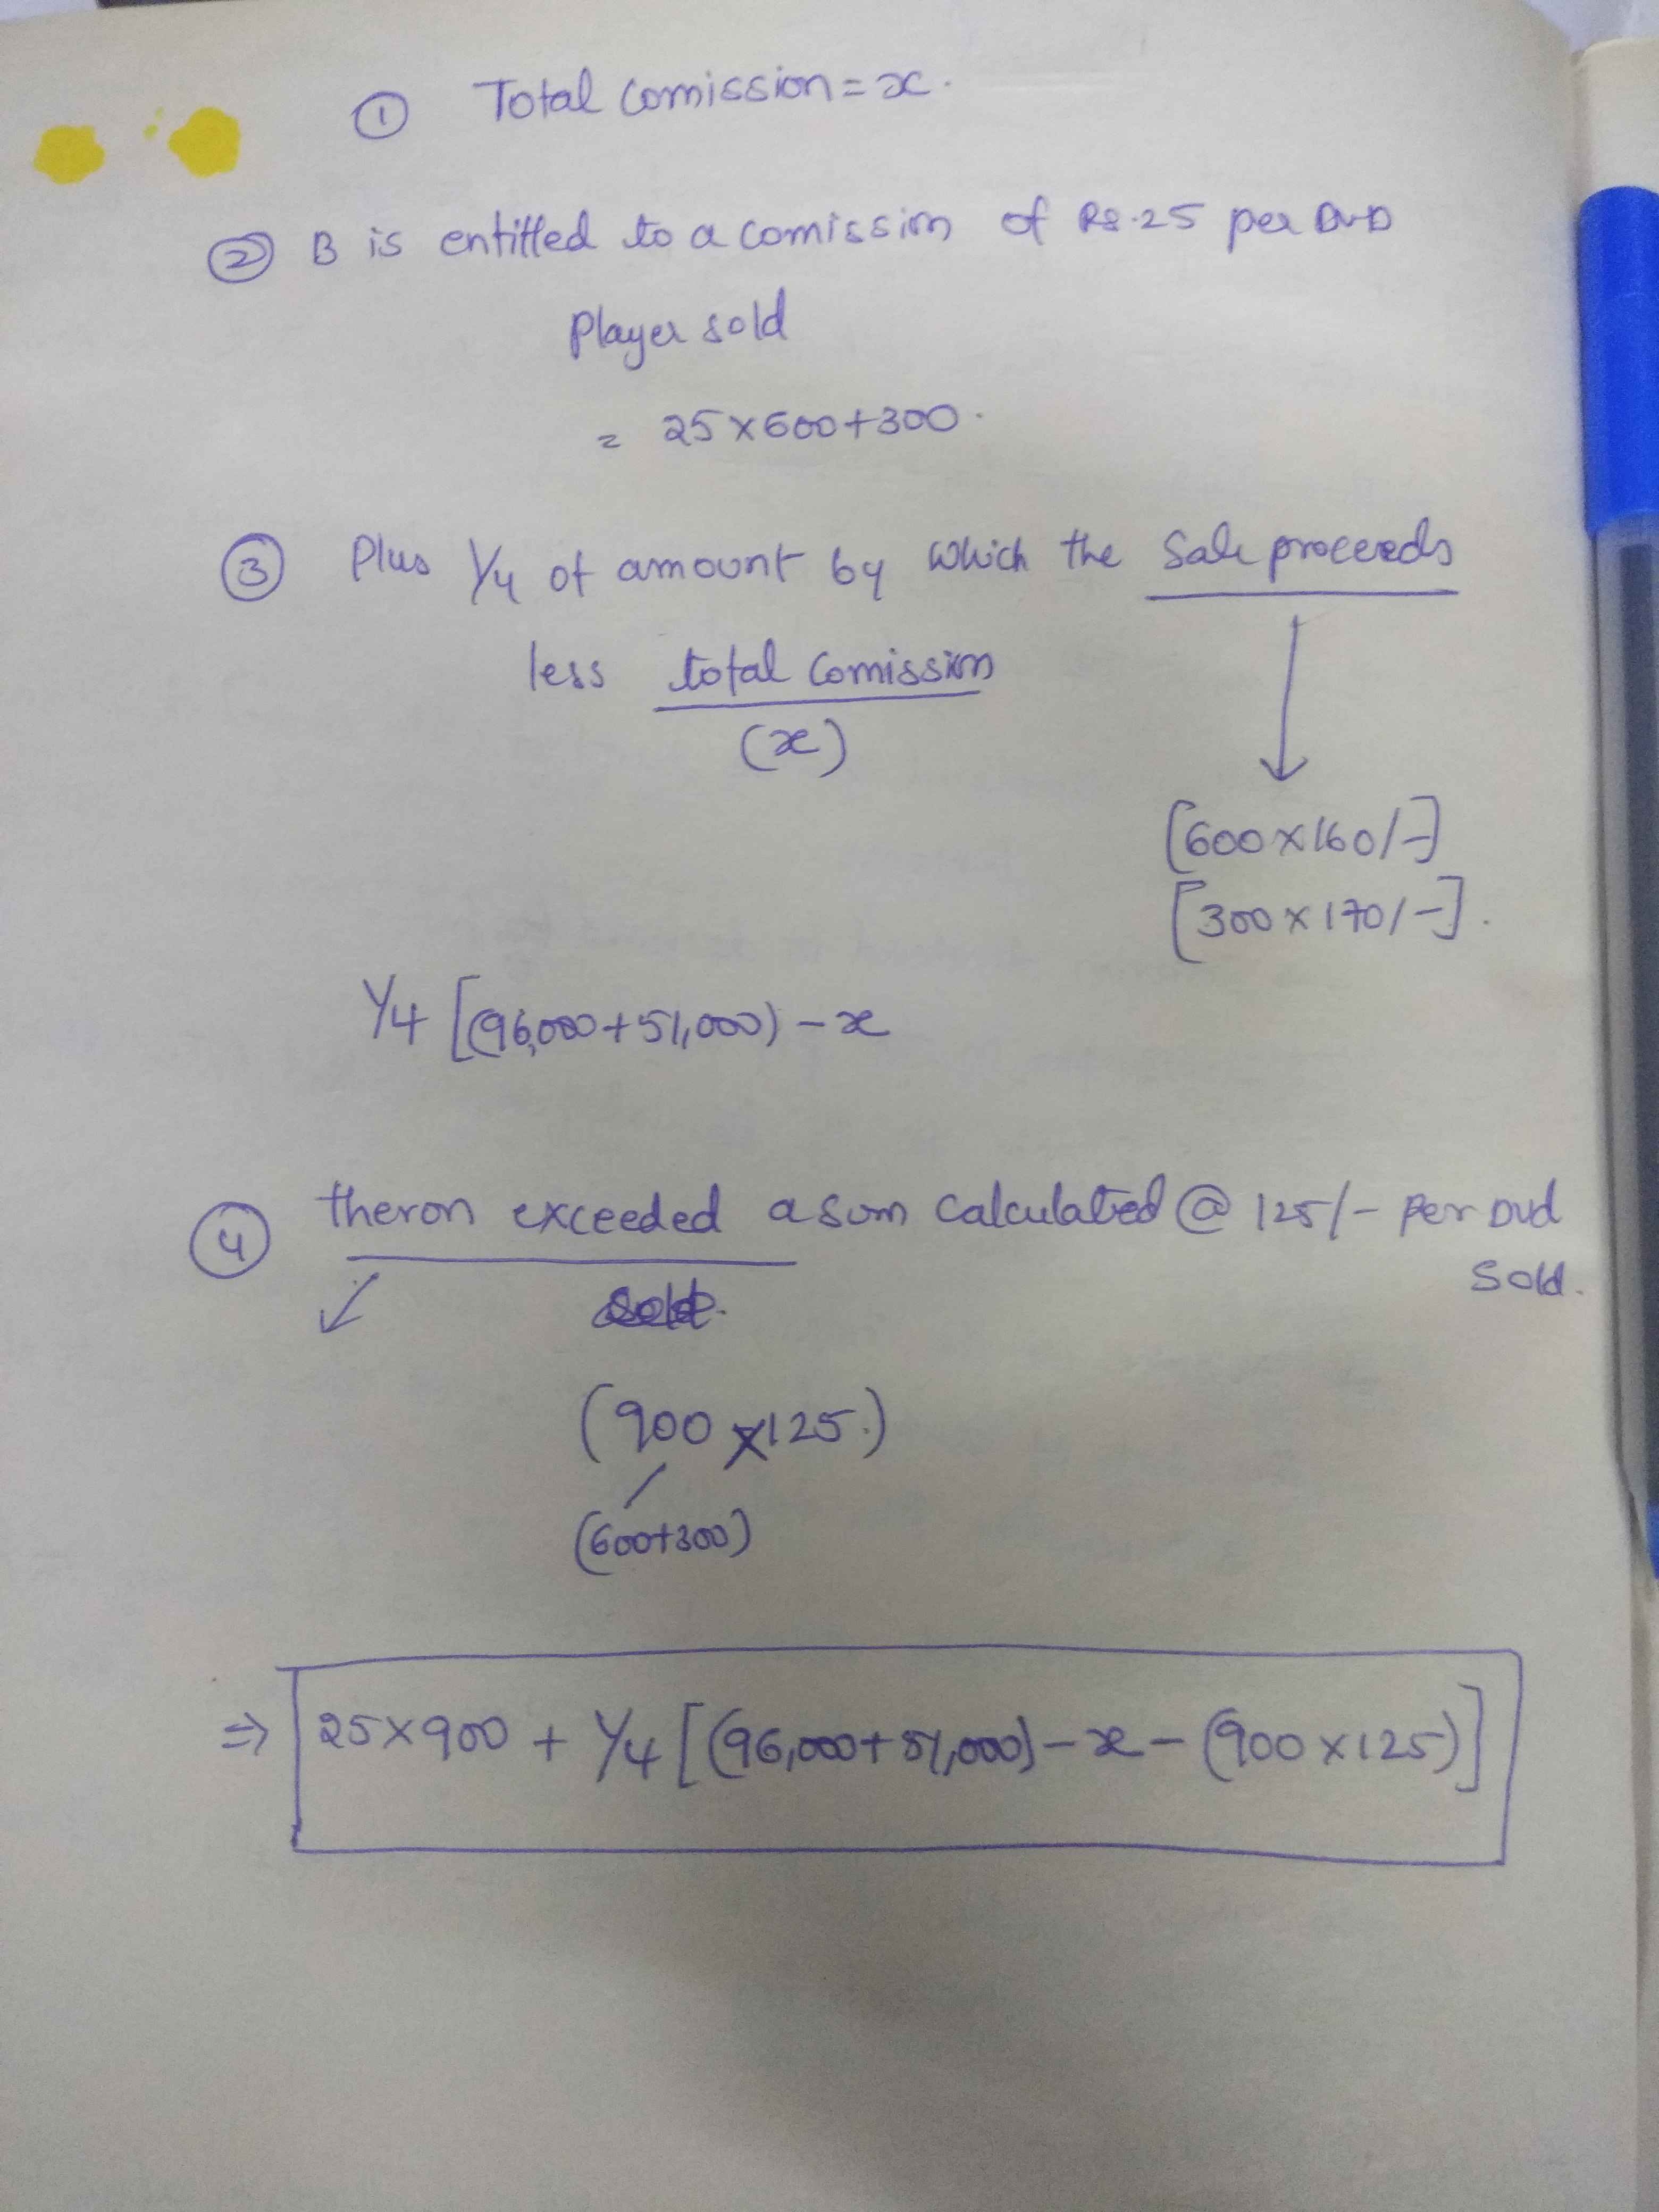 ① Total Comission = x.
② B is entitled to a comission of Rs.25 per DVD
Player sold
= 25×600+300.
③ Plus 1/4 of amount by which the Sale proceeds
less total Comission
(x)
[600×160/-]
[300×170/-].
1/4 [(96,000+51,000) - x
④ theron exceeded a sum calculated @ 125/- Per Dvd
Sold.
(900×125.)
(600+300)
⇒ 25×900 + 1/4 [(96,000+51,000) - x - (900×125)]